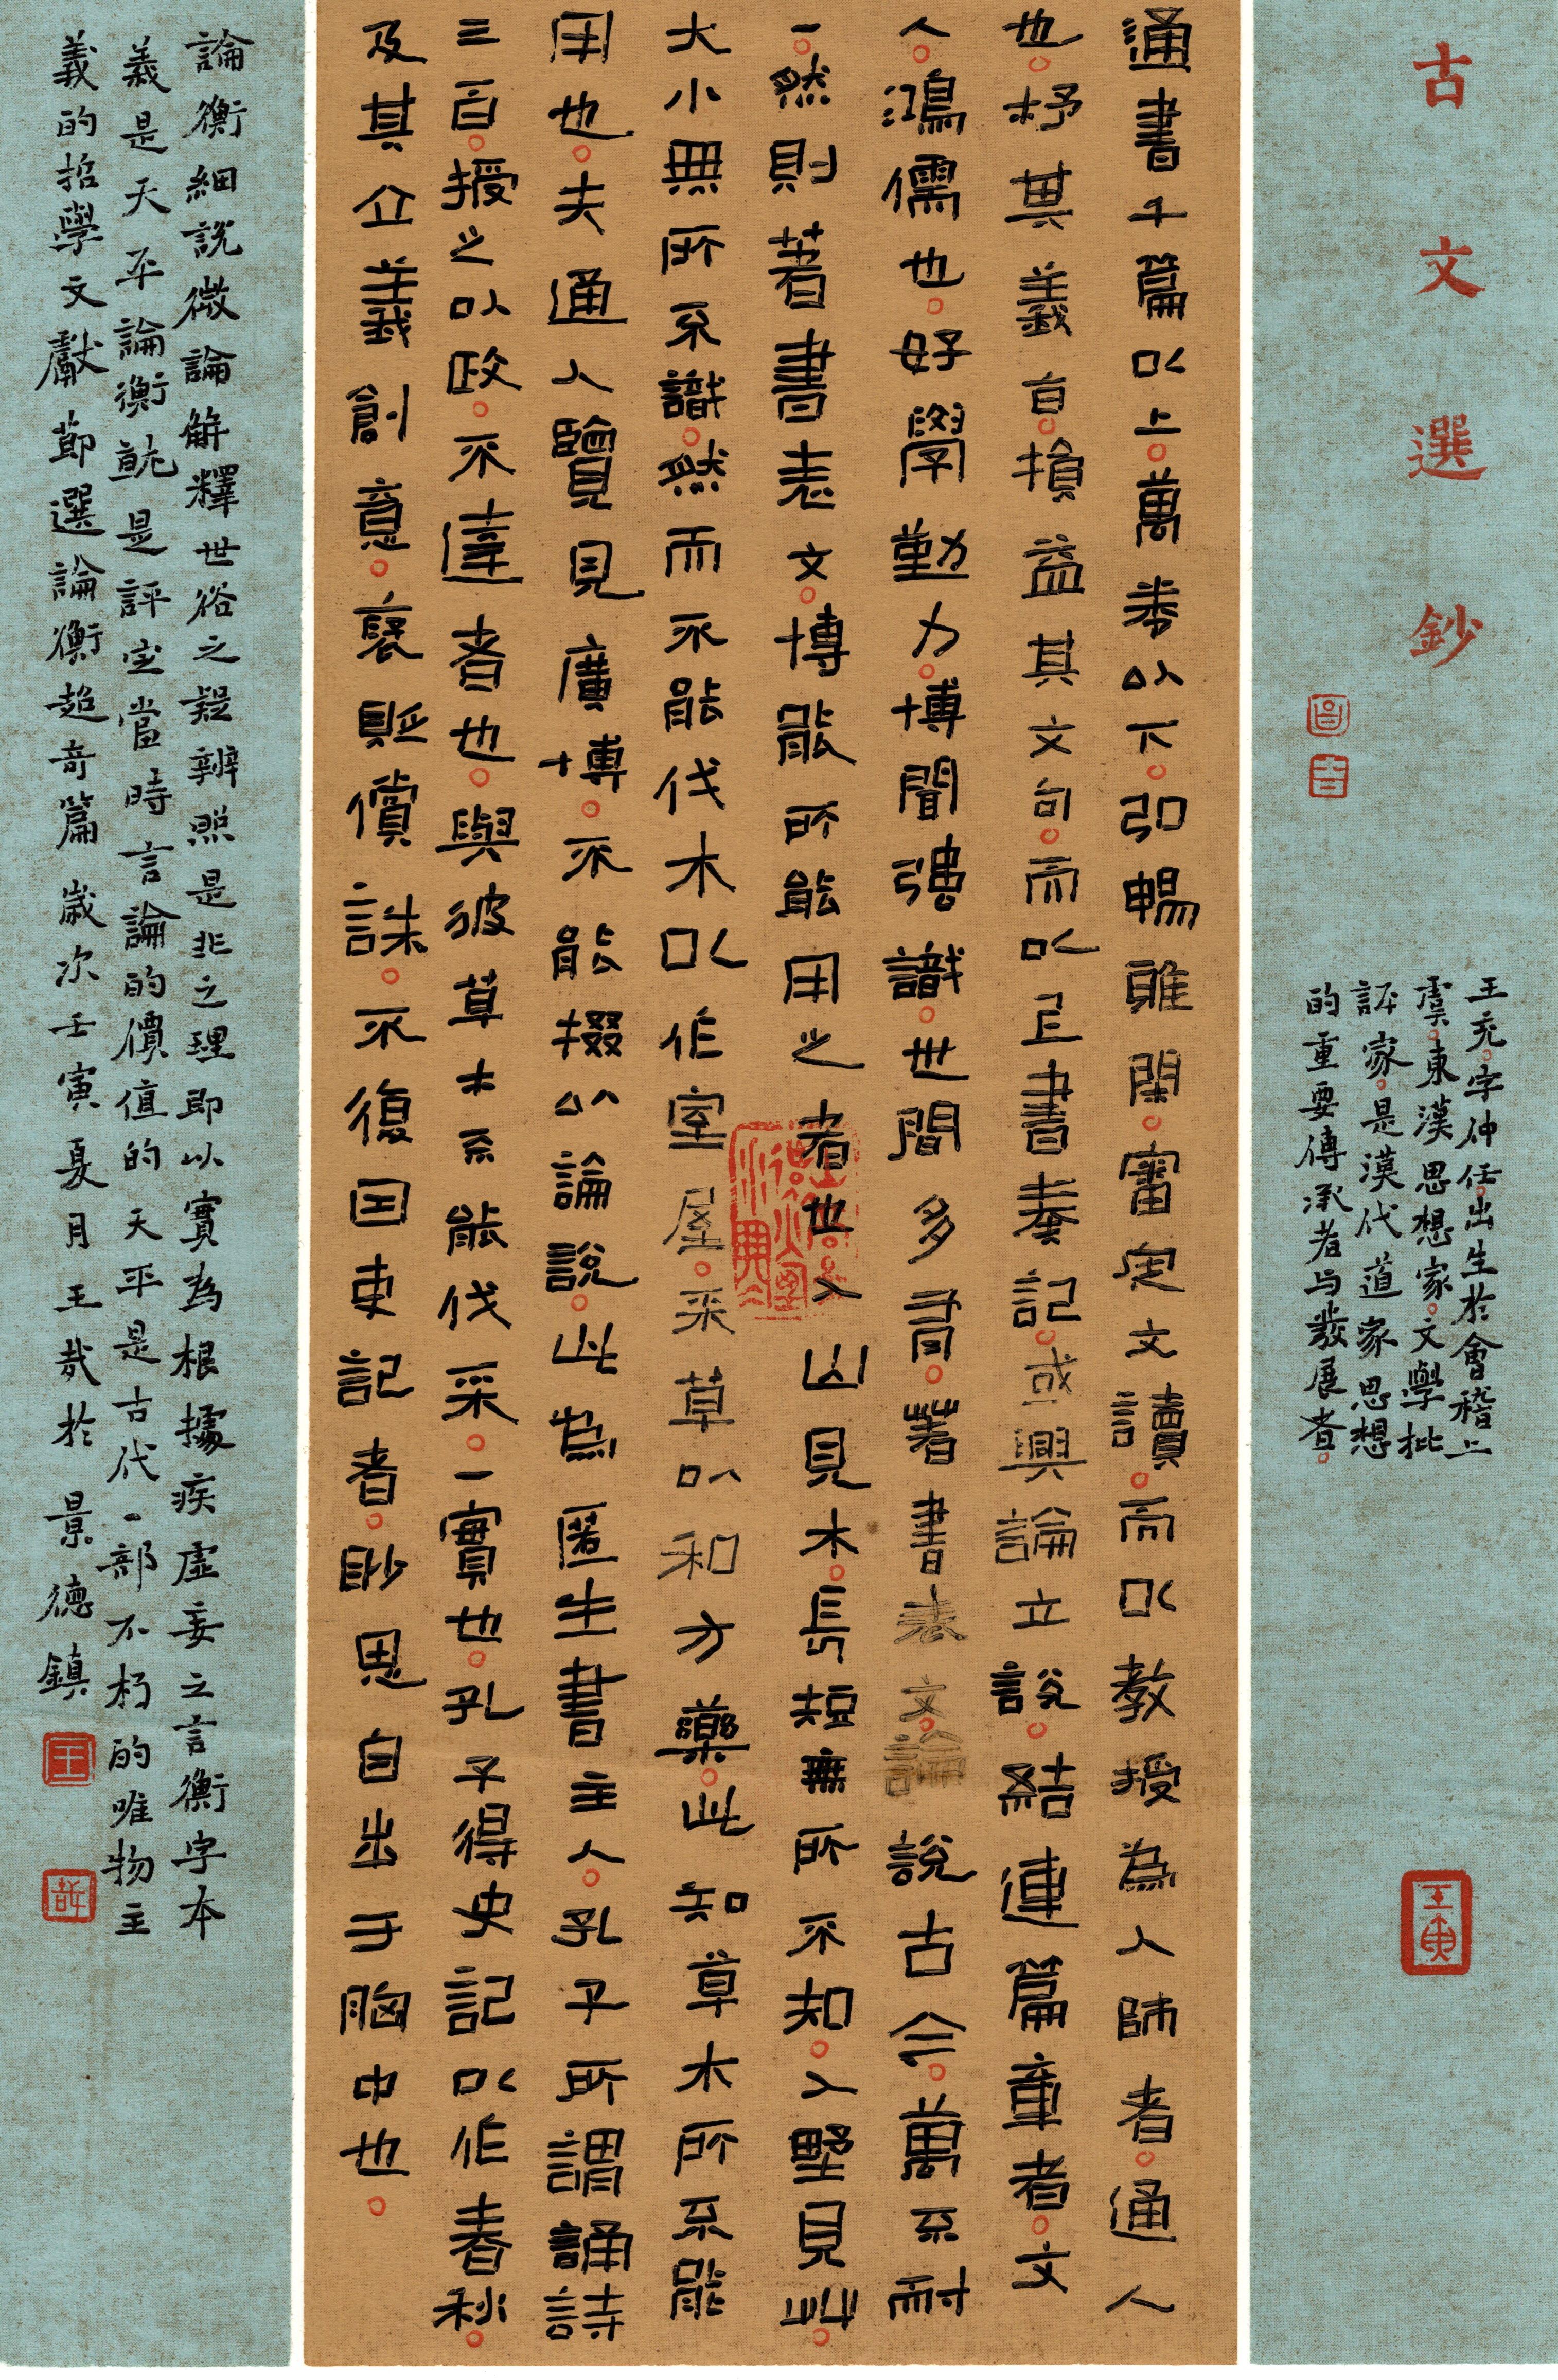 古文選鈔
王充。字仲任。出生於會稽上
虞。東漢思想家。文學批
評家。是漢代道家思想
的重要傳承者与發展者。
壬寅
通書千篇以上。萬卷以下。弘暢雅閑。審定文讀。而以教授為人師者。通人
也。杼其義旨。損益其文句。而以上書奏記。或興論立說。結連篇章者。文
人。鴻儒也。好學勤力。博聞強識。世間多有。著書表文。論說古今。萬不耐
一。然則著書表文。博能所能用之者也。入山見木。長短無所不知。入野見艸。
大小無所不識。然而不能伐木以作室屋。采草以和方藥。此知草木所不能
用也。夫通人覽見廣博。不能掇以論說。此為匿生書主人。孔子所謂誦詩
三百。授之以政。不達者也。與彼草木不能伐采。一實也。孔子得史記以作春秋。
及其立義創意。褒貶償誅。不復因史記者。眇思自出于胸中也。
論衡細説微論解釋世俗之疑辨照是非之理即以實為根據疾虛妄之言衡字本
義是天平論衡就是評定當時言論的價值的天平是古代一部不朽的唯物主
義的哲學文獻節選論衡超奇篇歲次壬寅夏月王哉於景德鎮
王